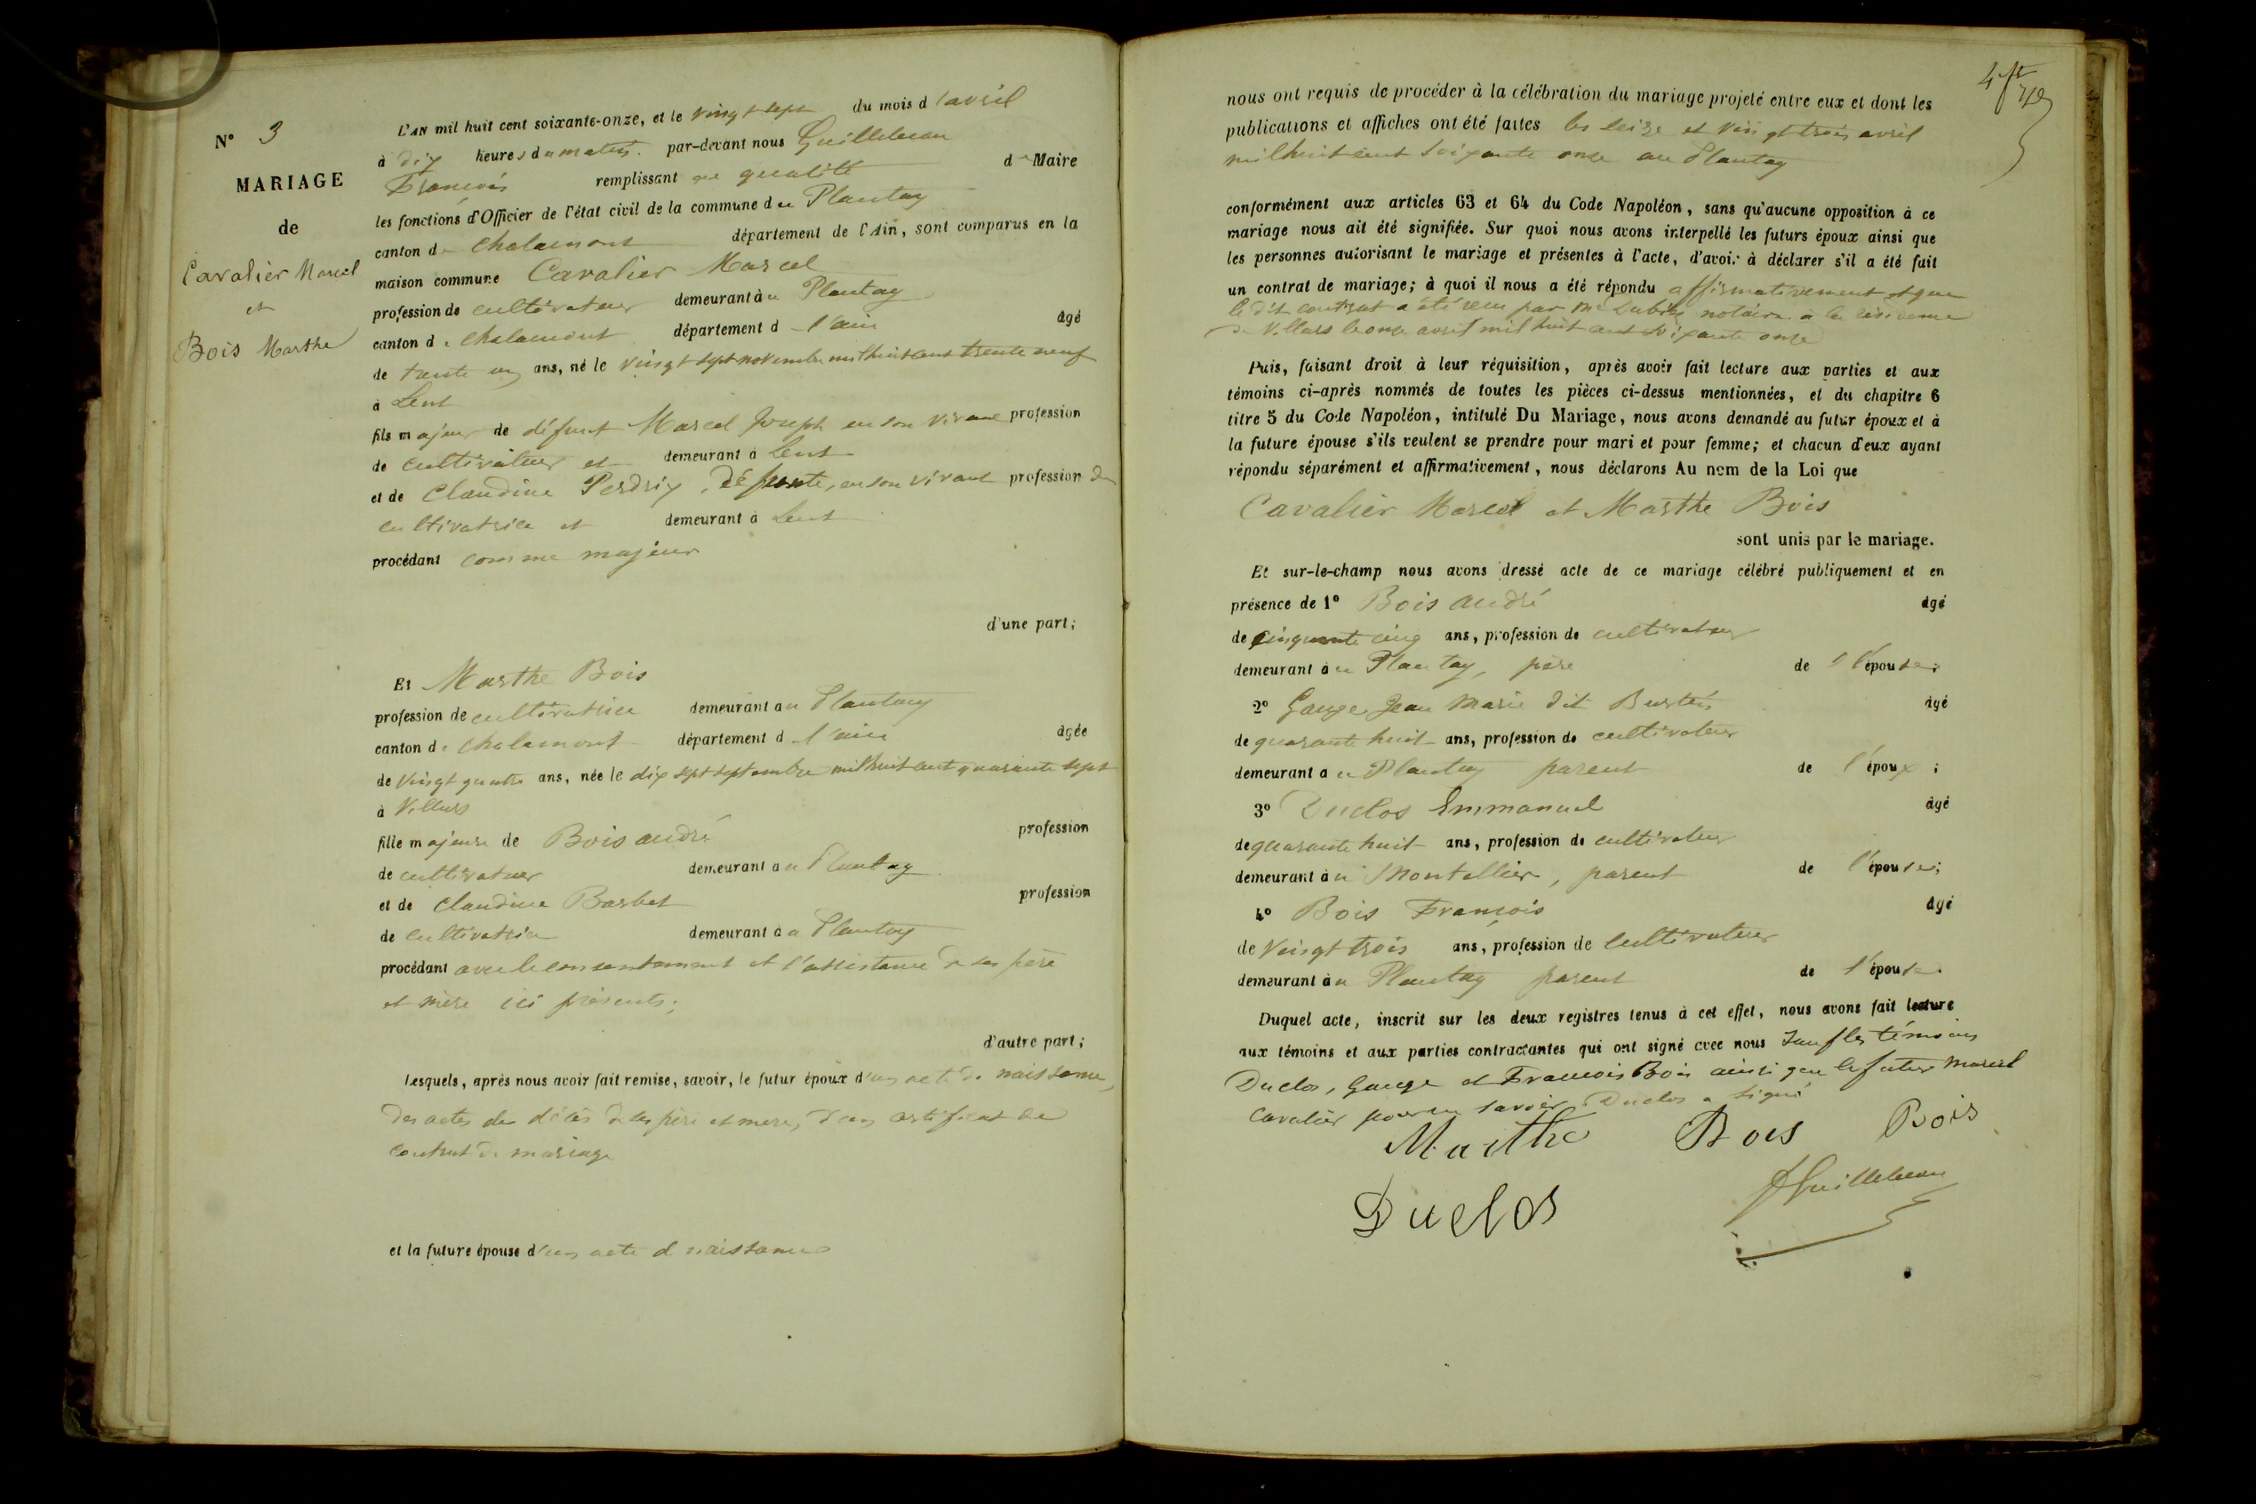 N° 3
MARIAGE
de
Cavalier Marcel
et
Bois Marthe
L'AN mil huit cent soixante-onze, et le vingt sept du mois d'avril
à dix heures du matin. par-devant nous Guillebeau
François remplissant en qualité de Maire
les fonctions d'Officier de l'état civil de la commune du Plantay
canton de Chalamont département de l'Ain, sont comparus en la
maison commune Cavalier Marcel
profession de cultivateur demeurant au Plantay
canton de Chalamont département de l'ain âgé
de trente un ans, né le vingt sept novembre mil huit cent trente neuf
à Lent
fils majeur de défunt Marcel Joseph en son vivant profession
de cultivateur et demeurant à Lent
et de Claudine Perdrix, Défunte, en son vivant profession de
cultivatrice et demeurant à Lent
procédant comme majeur
d'une part;
Et Marthe Bois
profession de cultivatrice demeurant au Plantay
canton de Chalamont département de l'ain âgée
de vingt quatre ans, née le dix sept septembre mil huit cent quarante sept
à Villars
fille majeure de Bois andré profession
de cultivateur demeurant au Plantay
et de Claudine Barbet profession
de cultivatrice demeurant au Plantay
procédant avec le consentement et l'assistance de ses père
et mère ici présents;
d'autre part;
lesquels, après nous avoir fait remise, savoir, le futur époux d'un acte de naissance,
des actes de décès de ses père et mère, d'un certificat de
contrat de mariage
et la future épouse d'un acte de naissance
nous ont requis de procéder à la célébration du mariage projeté entre eux et dont les
publications et affiches ont été faites les seize et vingt trois avril
mil huit cent soixante onze au Plantay
conformément aux articles 63 et 64 du Code Napoléon, sans qu'aucune opposition à ce
mariage nous ait été signifiée. Sur quoi nous avons interpellé les futurs époux ainsi que
les personnes autorisant le mariage et présentes à l'acte, d'avoir à déclarer s'il a été fait
un contrat de mariage; à quoi il nous a été répondu affirmativement et que
le dit contrat a été reçu par Me notaire à la résidence
de Villars le onze avril mil huit cent soixante onze
Puis, faisant droit à leur réquisition, après avoir fait lecture aux parties et aux
témoins ci-après nommés de toutes les pièces ci-dessus mentionnées, et du chapitre 6
titre 5 du Code Napoléon, intitulé Du Mariage, nous avons demandé au futur époux et à
la future épouse s'ils veulent se prendre pour mari et pour femme; et chacun d'eux ayant
répondu séparément et affirmativement, nous déclarons Au nom de la Loi que
Cavalier Marcel et Marthe Bois
sont unis par le mariage.
Et sur-le-champ nous avons dressé acte de ce mariage célébré publiquement et en
présence de 1° Bois andré âgé
de cinquante cinq ans, profession de cultivateur
demeurant au Plantay, père de l'épouse;
2° Gauge Jean Marie dit âgé
de quarante huit ans, profession de cultivateur
demeurant au Plantay parent de l'époux;
3° Duclos Emmanuel âgé
de quarante huit ans, profession de cultivateur
demeurant à Montellier, parent de l'épouse;
4° Bois François âgé
de vingt trois ans, profession de cultivateur
demeurant au Plantay parent de l'épouse.
Duquel acte, inscrit sur les deux registres tenus à cet effet, nous avons fait lecture
aux témoins et aux parties contractantes qui ont signé avec nous sauf les témoins
Duclos, Gauge et François Bois ainsi que le futur Marcel
Cavalier pour ne savoir. Duclos a signé
Marthe Bois Bois
Duclos Guillebeau